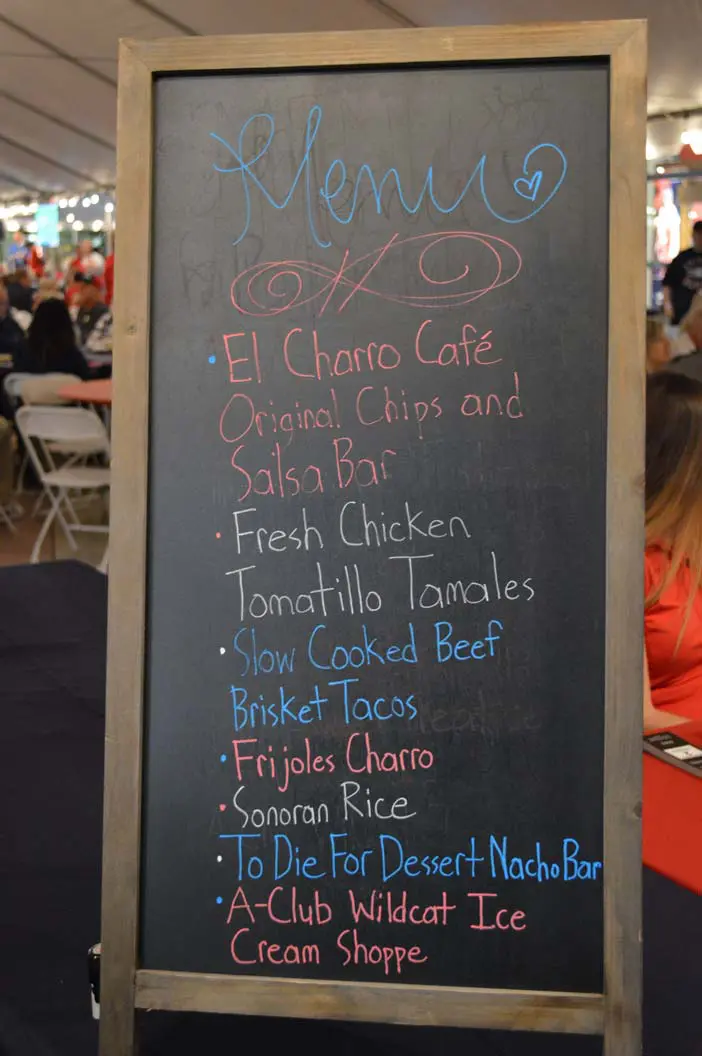 Menu
• El Charro Café
Original Chips and
Salsa Bar
• Fresh Chicken
Tomatillo Tamales
• Slow Cooked Beef
Brisket Tacos
• Frijoles Charro
• Sonoran Rice
• To Die For Dessert Nacho Bar
• A-Club Wildcat Ice
Cream Shoppe